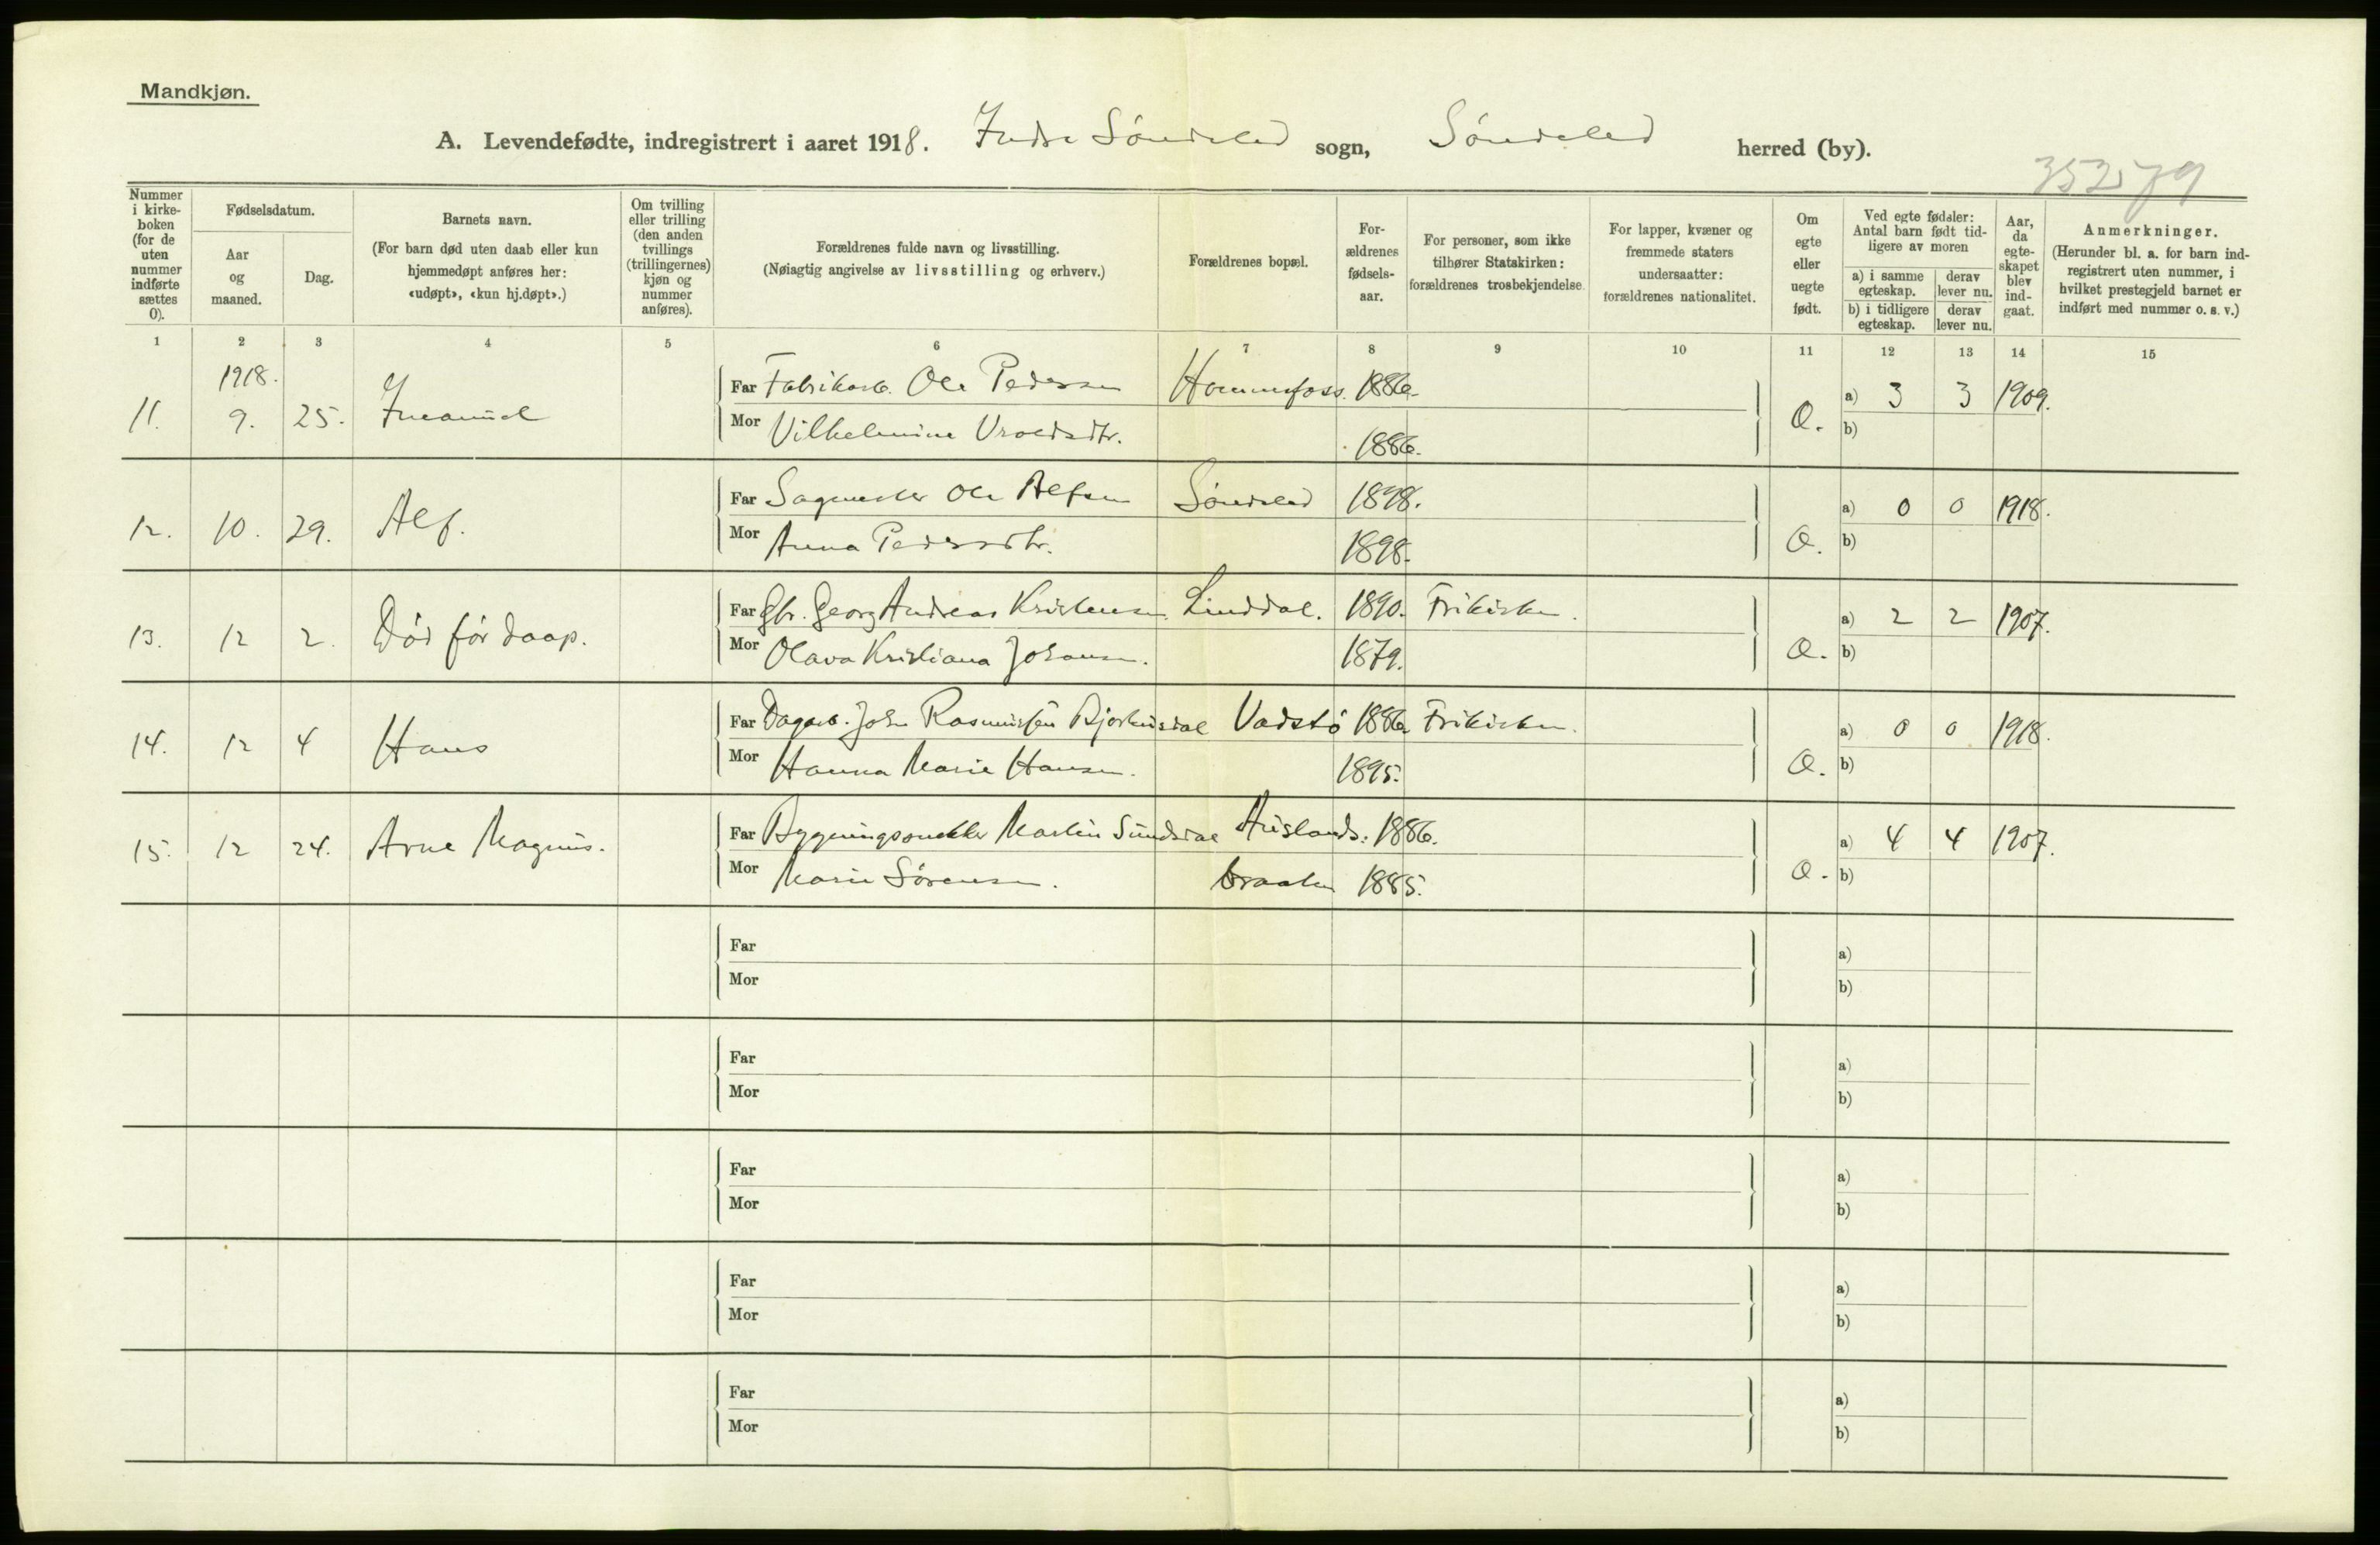 Mandkjøn.
A. Levendefødte, indregistrert i aaret 1918. Indre Søndeled sogn, Søndeled herred (by).
35279
Nummer i kirke-boken (for de uten nummer indførte sættes 0).
Fødselsdatum.
Aar og maaned.
Dag.
Barnets navn.
(For barn død uten daab eller kun hjemmedøpt anføres her: «udøpt», «kun hj.døpt».)
Om tvilling eller trilling (den anden tvillings (trillingernes) kjøn og nummer anføres).
Forældrenes fulde navn og livsstilling.
(Nøiagtig angivelse av livsstilling og erhverv.)
Forældrenes bopæl.
For-ældrenes fødsels-aar.
For personer, som ikke tilhører Statskirken: forældrenes trosbekjendelse.
For lapper, kvæner og fremmede staters undersaatter: forældrenes nationalitet.
Om egte eller uegte født.
Ved egte fødsler: Antal barn født tid-ligere av moren
a) i samme egteskap. derav lever nu.
b) i tidligere egteskap. derav lever nu.
Aar, da egte-skapet blev ind-gaat.
Anmerkninger.
(Herunder bl. a. for barn ind-registrert uten nummer, i hvilket prestegjeld barnet er indført med nummer o. s. v.)
1 2 3 4 5 6 7 8 9 10 11 12 13 14 15
1918.
11. 9. 25. Far Fabrikarb. Ole Pedersen Hammefoss. 1886. a) 3 3 1909.
Mor Vilhelmine Vroldsdtr. 1886. b)
12. 10. 29. Alf. Far Sagmester Ole Alfsen Søndeled 1898. a) 0 0 1918.
Mor Anna Pedersdtr. 1898. b)
13. 12 2. Død før daap. Far Gbr. Georg Andreas Kristensen Linddal. 1890. Frikirken. a) 2 2 1907.
Mor Olava Kristiana Johansen. 1879. b)
14. 12 4 Hans Far Dagarb. John Rasmussen Bjorkusdal Vadstø 1886 Frikirken. a) 0 0 1918.
Mor Hanna Marie Hansen. 1895. b)
15. 12 24. Arne Magnus. Far Bygningssnekker Martin Sundsdal Auslands. 1886. a) 4 4 1907.
Mor Marie Sørensen. braaten 1885. b)
Far a)
Mor b)
Far a)
Mor b)
Far a)
Mor b)
Far a)
Mor b)
Far a)
Mor b)